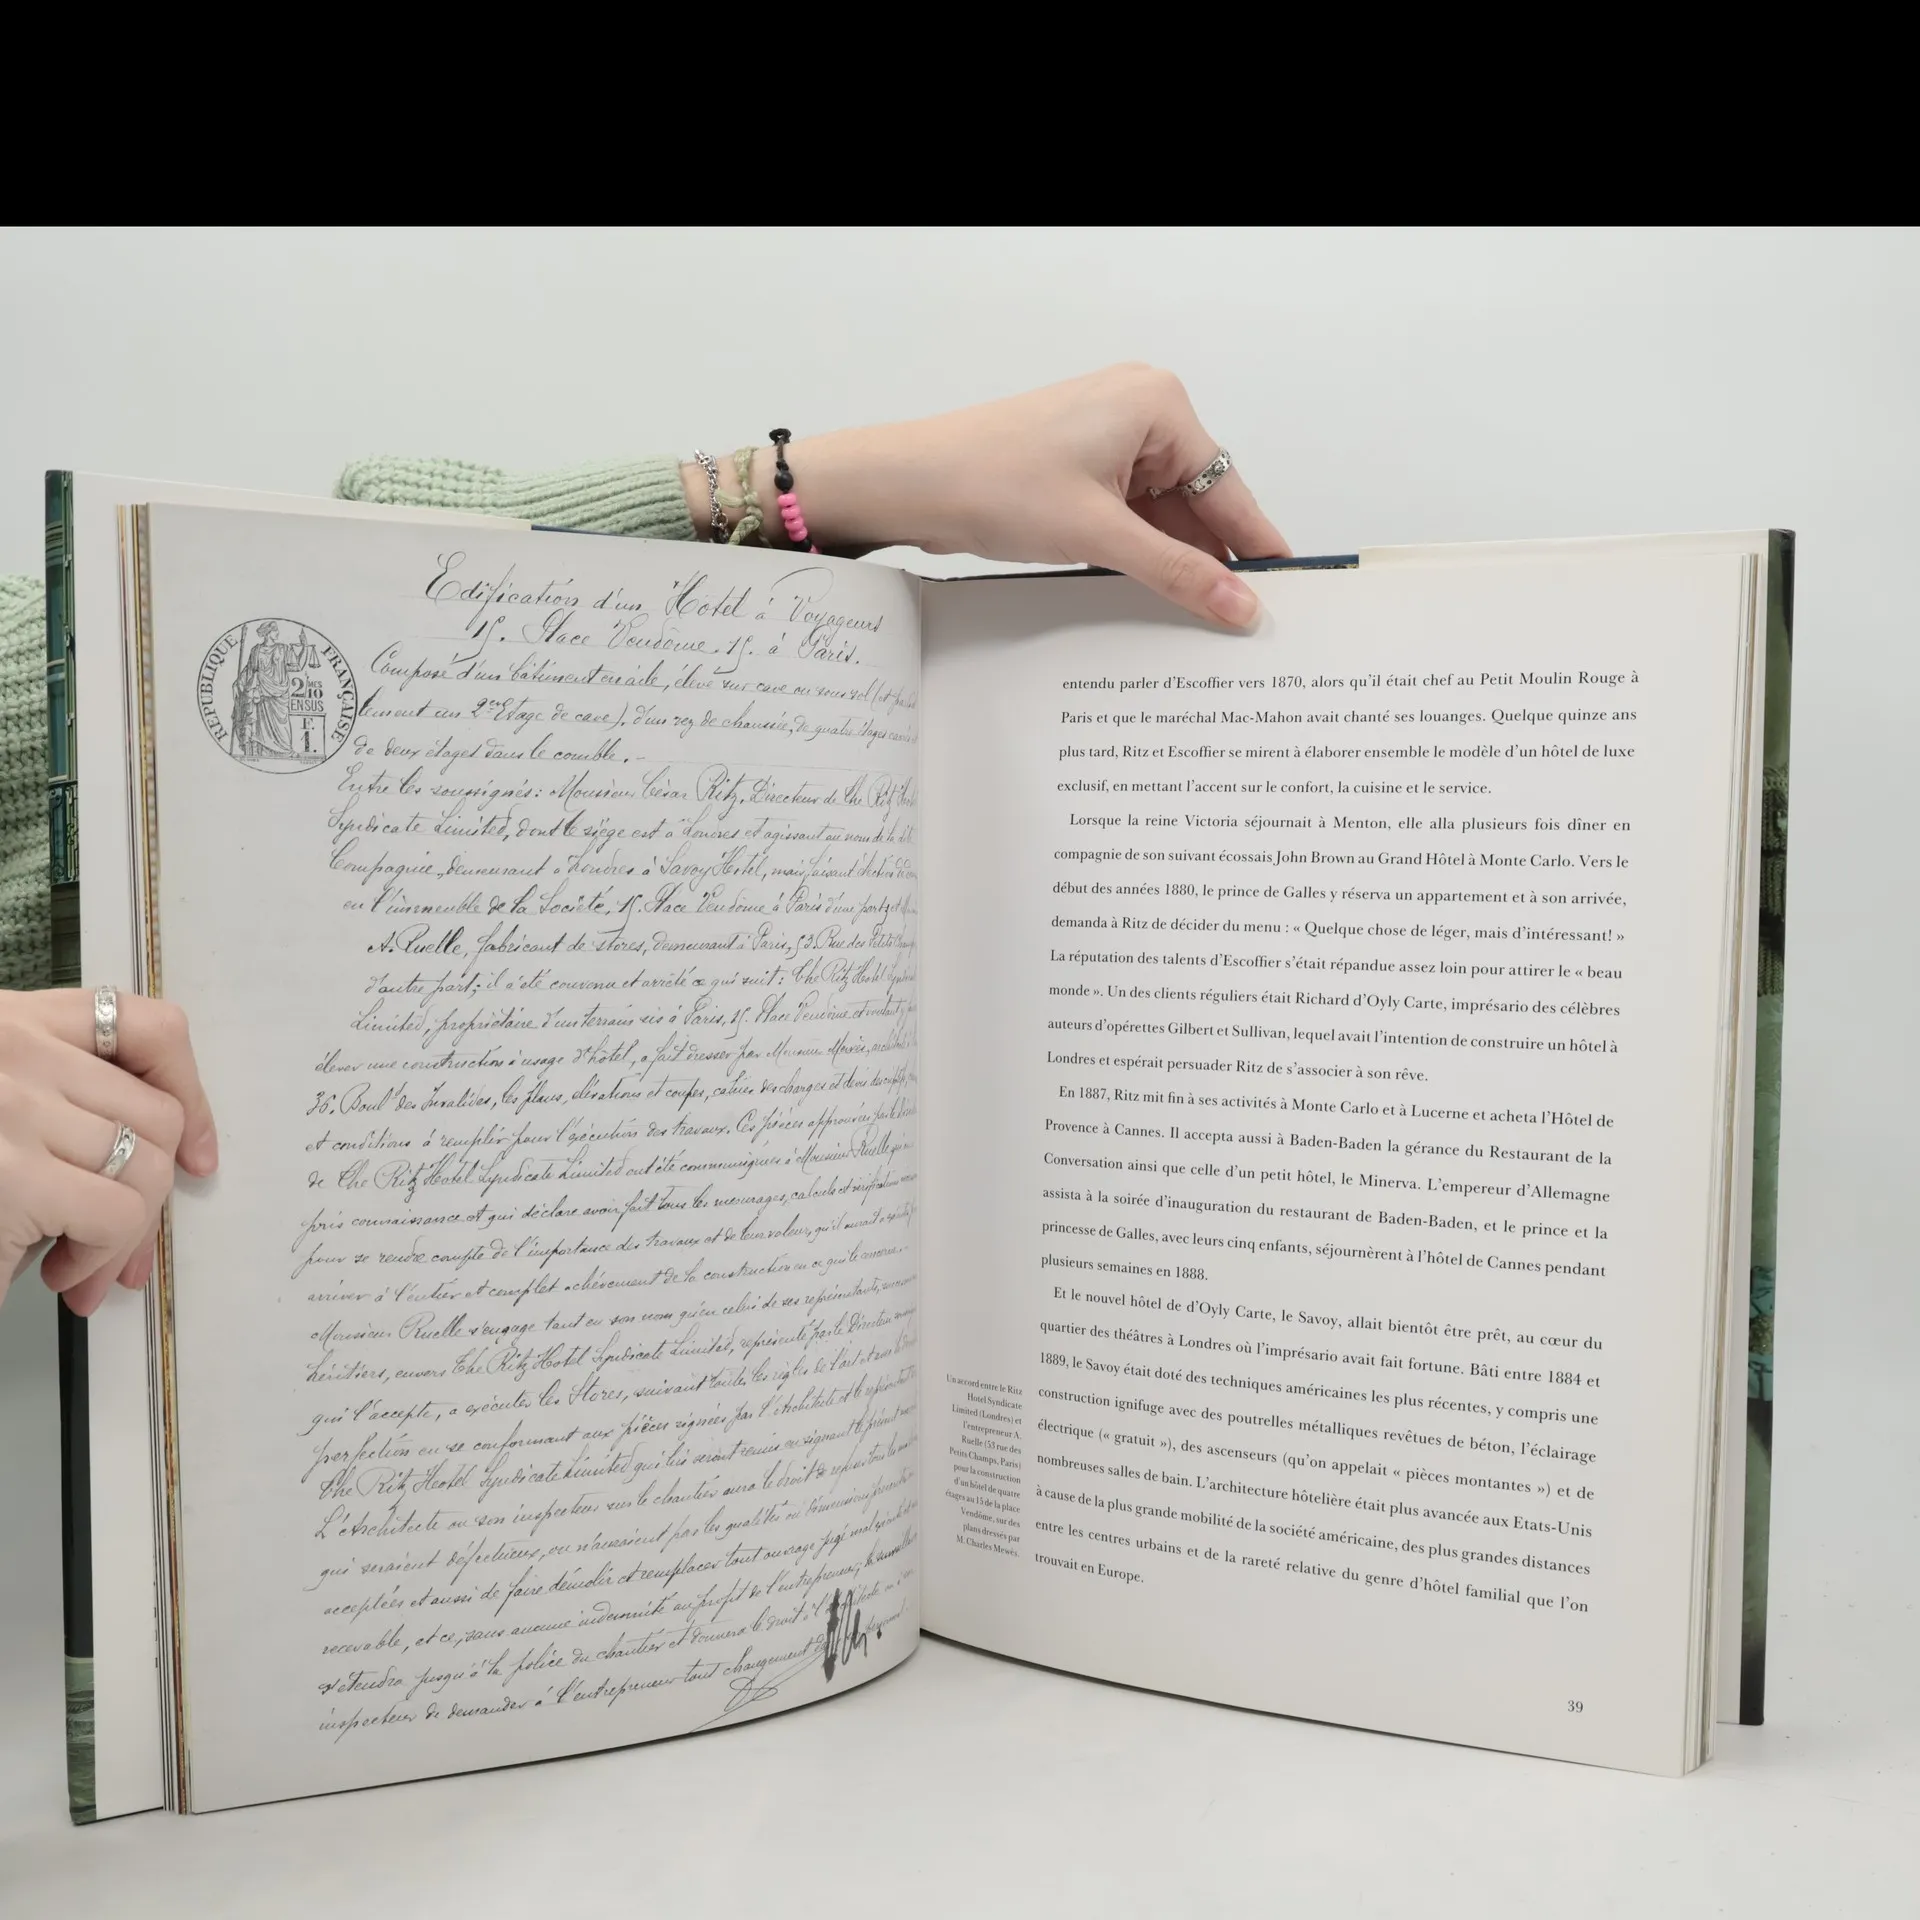 Edification d'un Hôtel à Voyageurs
15. Place Vendôme. 15. à Paris.
REPUBLIQUE FRANÇAISE
2 MES
10
EN SUS
F.
1.
Composé d'un bâtiment en aile, élevé sur cave ou sous sol (et
lement un 2eme Etage de cave), d'un rez de chaussée, de quatre étages carrés
de deux étages dans le comble. -
Entre les soussignés: Monsieur César Ritz, Directeur de The Ritz
Syndicate Limited, dont le siège est à Londres et agissant au nom de la dite
Compagnie, demeurant à Londres à Savoy Hotel, mais faisant élection de
en l'immeuble de la Société, 15. Place Vendôme à Paris d'une part; et
A. Ruelle, fabricant de stores, demeurant à Paris, 53. Rue des Petits Champs
d'autre part; il a été convenu et arrêté ce qui suit: The Ritz Hotel Syndicate
Limited, propriétaire d'un terrain sis à Paris, 15. Place Vendôme et voulant y
élever une construction à usage d'hôtel, a fait dresser par Monsieur Mewès, architecte
36. Bould des Invalides, les plans, élévations et coupes, cahier des charges et devis descriptifs,
et conditions à remplir pour l'exécution des travaux. Ces pièces approuvées par le
de The Ritz Hotel Syndicate Limited ont été communiquées à Monsieur Ruelle qui en a
pris connaissance et qui déclare avoir fait tous les mesurages, calculs et vérifications
pour se rendre compte de l'importance des travaux et de leur valeur, qu'il aurait à exécuter
arriver à l'entier et complet achèvement de la construction en ce qui le concerne. -
Monsieur Ruelle s'engage tant en son nom qu'en celui de ses représentants, successeurs
héritiers, envers The Ritz Hotel Syndicate Limited, représenté par le Directeur
qui l'accepte, à exécuter les Stores, suivant toutes les règles de l'art et avec la
perfection en se conformant aux pièces signées par l'Architecte et le représentant
The Ritz Hotel Syndicate Limited qui lui seront remis en signant le présent
L'Architecte ou son inspecteur sur le chantier aura le droit de refuser tous les
qui seraient défectueux, ou n'auraient pas les qualités ou dimensions
acceptées et aussi de faire démolir et remplacer tout ouvrage jugé mal
recevable, et ce, sans aucune indemnité au profit de l'entrepreneur; la surveillance
s'étendra jusqu'à la police du chantier et donnera le droit à l'architecte ou à son
inspecteur de demander à l'entrepreneur tout changement
entendu parler d'Escoffier vers 1870, alors qu'il était chef au Petit Moulin Rouge à
Paris et que le maréchal Mac-Mahon avait chanté ses louanges. Quelque quinze ans
plus tard, Ritz et Escoffier se mirent à élaborer ensemble le modèle d'un hôtel de luxe
exclusif, en mettant l'accent sur le confort, la cuisine et le service.
Lorsque la reine Victoria séjournait à Menton, elle alla plusieurs fois dîner en
compagnie de son suivant écossais John Brown au Grand Hôtel à Monte Carlo. Vers le
début des années 1880, le prince de Galles y réserva un appartement et à son arrivée,
demanda à Ritz de décider du menu : « Quelque chose de léger, mais d'intéressant! »
La réputation des talents d'Escoffier s'était répandue assez loin pour attirer le « beau
monde ». Un des clients réguliers était Richard d'Oyly Carte, imprésario des célèbres
auteurs d'opérettes Gilbert et Sullivan, lequel avait l'intention de construire un hôtel à
Londres et espérait persuader Ritz de s'associer à son rêve.
En 1887, Ritz mit fin à ses activités à Monte Carlo et à Lucerne et acheta l'Hôtel de
Provence à Cannes. Il accepta aussi à Baden-Baden la gérance du Restaurant de la
Conversation ainsi que celle d'un petit hôtel, le Minerva. L'empereur d'Allemagne
assista à la soirée d'inauguration du restaurant de Baden-Baden, et le prince et la
princesse de Galles, avec leurs cinq enfants, séjournèrent à l'hôtel de Cannes pendant
plusieurs semaines en 1888.
Et le nouvel hôtel de d'Oyly Carte, le Savoy, allait bientôt être prêt, au cœur du
quartier des théâtres à Londres où l'imprésario avait fait fortune. Bâti entre 1884 et
1889, le Savoy était doté des techniques américaines les plus récentes, y compris une
construction ignifuge avec des poutrelles métalliques revêtues de béton, l'éclairage
électrique (« gratuit »), des ascenseurs (qu'on appelait « pièces montantes ») et de
nombreuses salles de bain. L'architecture hôtelière était plus avancée aux Etats-Unis
à cause de la plus grande mobilité de la société américaine, des plus grandes distances
entre les centres urbains et de la rareté relative du genre d'hôtel familial que l'on
trouvait en Europe.
Un accord entre le Ritz
Hotel Syndicate
Limited (Londres) et
l'entrepreneur A.
Ruelle (53 rue des
Petits Champs, Paris)
pour la construction
d'un hôtel de quatre
étages au 15 de la place
Vendôme, sur des
plans dressés par
M. Charles Mewès.
39